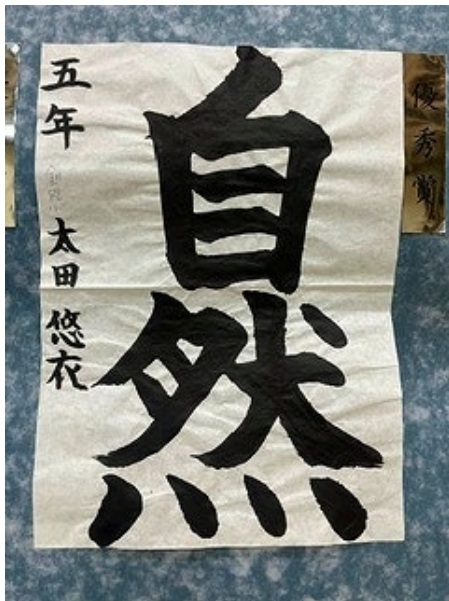 優秀賞
自然
五年
太田悠衣